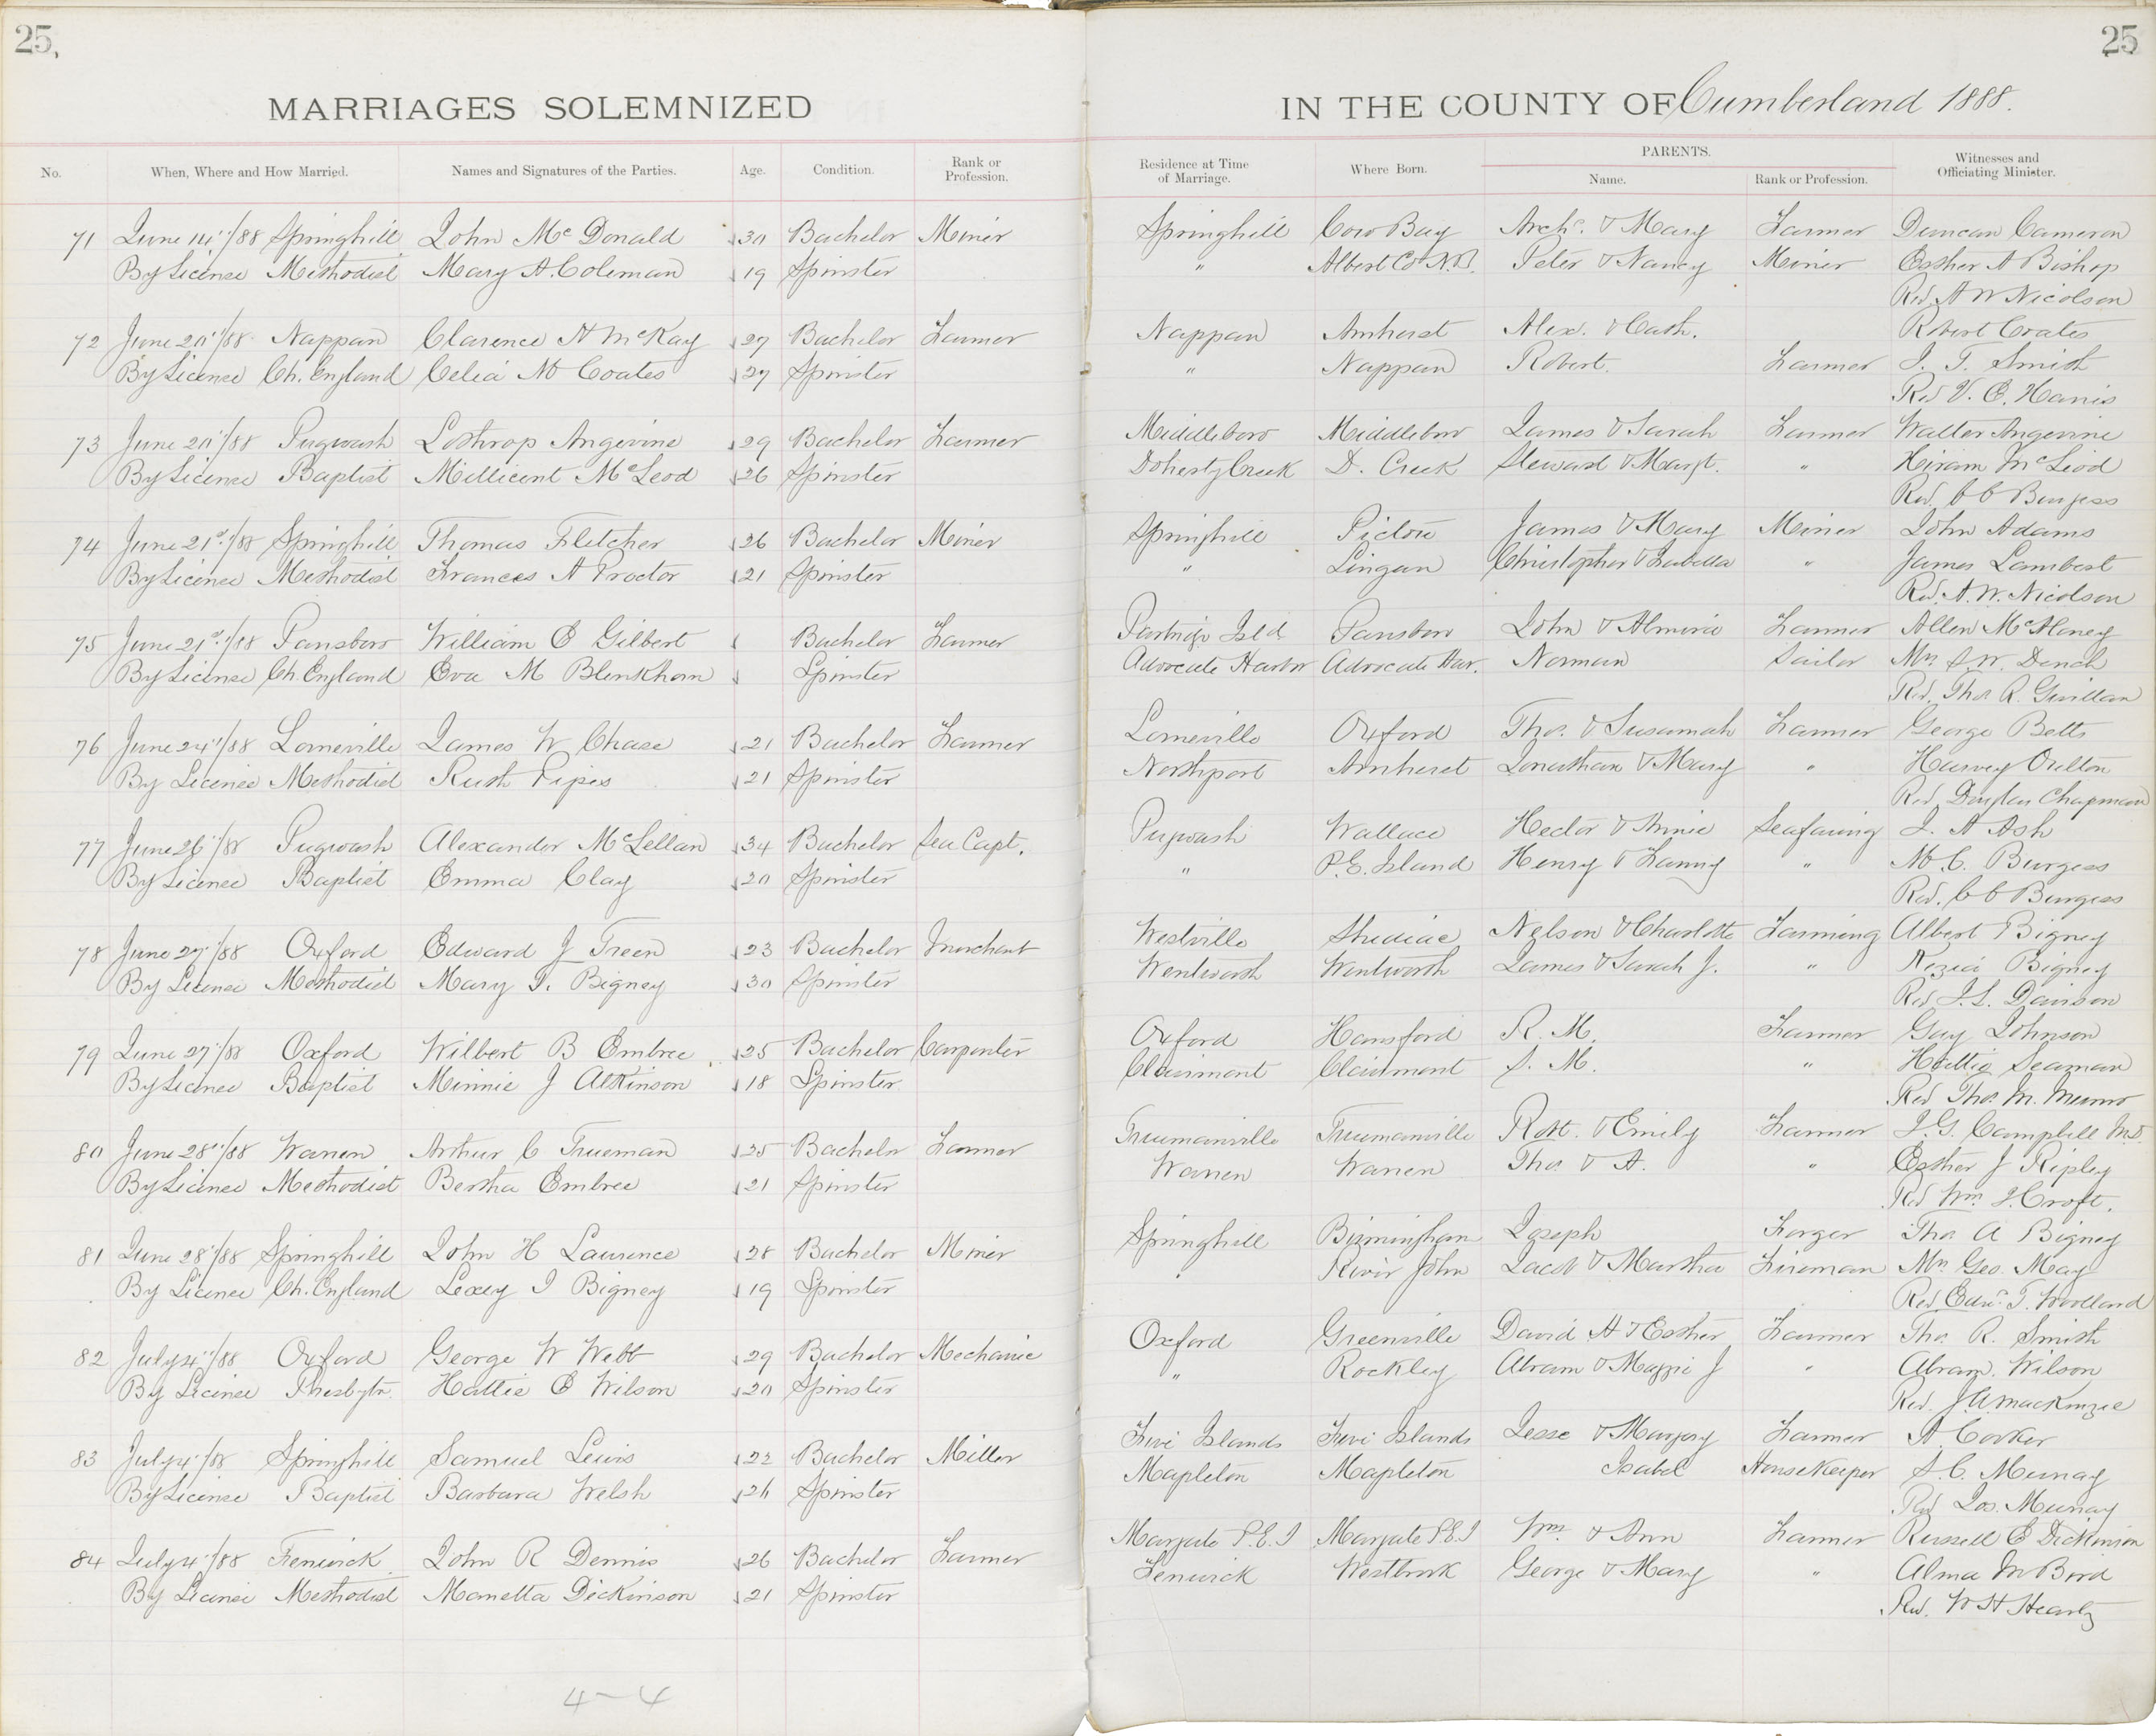 25,
25
MARRIAGES SOLEMNIZED
IN THE COUNTY OF Cumberland 1888.
No. When, Where and How Married. Names and Signatures of the Parties. Age. Condition. Rank or Profession. Residence at Time of Marriage. Where Born. PARENTS. Name. Rank or Profession. Witnesses and Officiating Minister.
71 June 14"/88 Springhill John McDonald 30 Bachelor Miner Springhill Cow Bay Archd. & Mary Farmer Duncan Cameron
By License Methodist Mary A. Coleman 19 Spinster " Albert Co N.B. Peter & Nancy Miner Esther A Bishop
Rev A W Nicolson
72 June 20"/88 Nappan Clarence A McKay 27 Bachelor Farmer Nappan Amherst Alex. & Cath. Robert Coates
By License Ch. England Celia M Coates 27 Spinster " Nappan Robert. Farmer J. T. Smith
Rev V. E. Harris
73 June 20"/88 Pugwash Lothrop Angevine 29 Bachelor Farmer Middleboro Middleboro James & Sarah Farmer Walter Angevine
By License Baptist Millicent McLeod 26 Spinster Doherty Creek D. Creek Steward & Margt. " Hiram McLeod
Rev. C C Burgess
74 June 21st/88 Springhill Thomas Fletcher 26 Bachelor Miner Springhill Pictou James & Mary Miner John Adams
By License Methodist Frances A Proctor 21 Spinster " Lingan Christopher & Isabella " James Lambert
Rev. A. W. Nicolson
75 June 21st/88 Parrsboro William E Gilbert Bachelor Farmer Partridge Isld Parrsboro John & Almira Farmer Allen McAloney
By License Ch. England Eva M Blenkhorn Spinster Advocate Harbor Advocate Har. Norman Sailor Mrs S. W. Dench
Rev. Thos R. Gwillim
76 June 24"/88 Lorneville James W Chase 21 Bachelor Farmer Lorneville Oxford Thos. & Susannah Farmer George Betts
By License Methodist Ruth Pipes 21 Spinster Northport Amherst Jonathan & Mary " Harvey Oulton
Rev Douglas Chapman
77 June 26"/88 Pugwash Alexander McLellan 34 Bachelor Sea Capt. Pugwash Wallace Hector & Annie Seafaring J. A Ash
By License Baptist Emma Clay 20 Spinster " P.E. Island Henry & Fanny " M. C. Burgess
Rev. C C Burgess
78 June 27"/88 Oxford Edward J Treen 23 Bachelor Merchant Westville Shediac Nelson & Charlotte Farming Albert Bigney
By License Methodist Mary I. Bigney 30 Spinster Wentworth Wentworth James & Sarah J. " Bigney
Rev J. L. Dawson
79 June 27"/88 Oxford Wilbert B Embree 25 Bachelor Carpenter Oxford Hansford R. M. Farmer Guy Johnson
By License Baptist Minnie J Atkinson 18 Spinster Clairmont Clairmont S. M. " Hattie Seaman
Rev Thos. M. Munro
80 June 28"/88 Warren Arthur C Trueman 25 Bachelor Farmer Truemanville Truemanville Robt. & Emily Farmer J. G. Campbell M.D.
By License Methodist Bertha Embree 21 Spinster Warren Warren Thos. & A. " Esther J Ripley
Rev Wm J. Croft.
81 June 28"/88 Springhill John H Laurence 28 Bachelor Miner Springhill Birmingham Joseph Forger Thos. A Bigney
By License Ch. England Lexey I Bigney 19 Spinster " River John Jacob & Martha Fireman Mrs Geo. May
Rev. Edw. T. Woollard
82 July 4"/88 Oxford George W Webb 29 Bachelor Mechanic Oxford Greenville David A & Esther Farmer Thos R. Smith
By License Presbytn. Hattie E Wilson 20 Spinster " Rockley Abram & Maggie J " Abram. Wilson
Rev. J A MacKenzie
83 July 4"/88 Springhill Samuel Lewis 22 Bachelor Miller Five Islands Five Islands Jesse & Margery Farmer A. Corker
By License Baptist Barbara Welsh 26 Spinster Mapleton Mapleton Isabel Housekeeper S. C. Murray
Rev Jos. Murray
84 July 4"/88 Fenwick John R Dennis 26 Bachelor Farmer Margate P.E.I Margate P.E.I Wm. & Ann Farmer Russell E Dickinson
By License Methodist Manetta Dickinson 21 Spinster Fenwick Westbrook George & Mary " Alma M Bird
Rev. W H Heartz
4-4